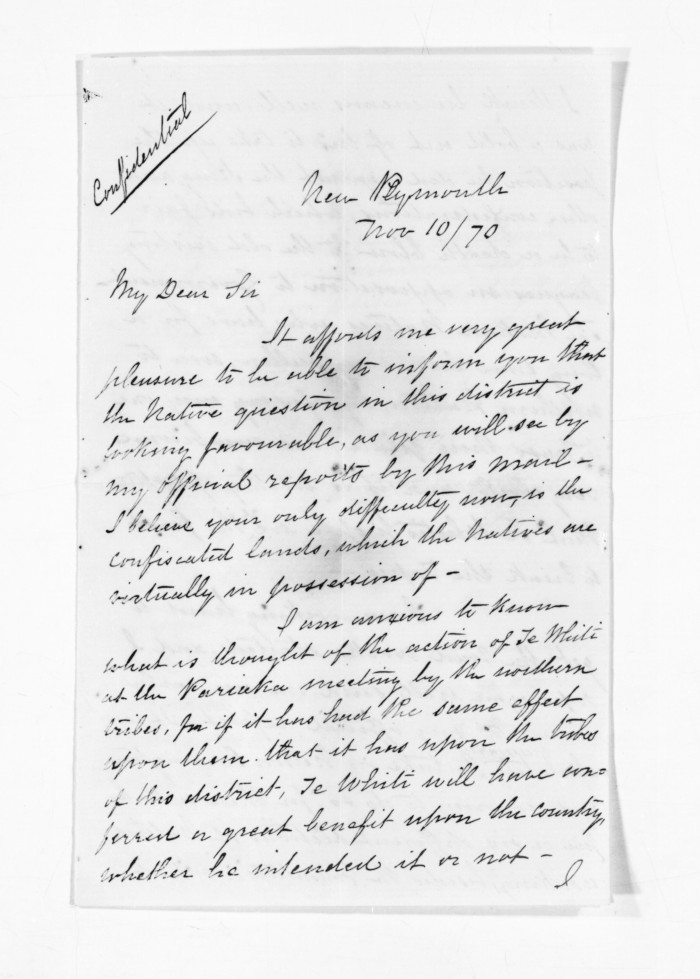 Confidential
New Plymouth
Nov 10/70
My Dear Sir
It affords me very great
pleasure to be able to inform you that
the Native question in this district is
looking favourable, as you will see by
my official reports by this mail -
I believe your only difficulty now, is the
confiscated lands, which the Natives are
virtually in possession of -
I am anxious to know
what is thought of the action of Te Whiti
at the Pariaka meeting by the northern
tribes, for if it has had the same effect
upon them that it has upon the tribes
of this district, Te Whiti will have con=
ferred a great benefit upon the country,
whether he intended it or not -
I